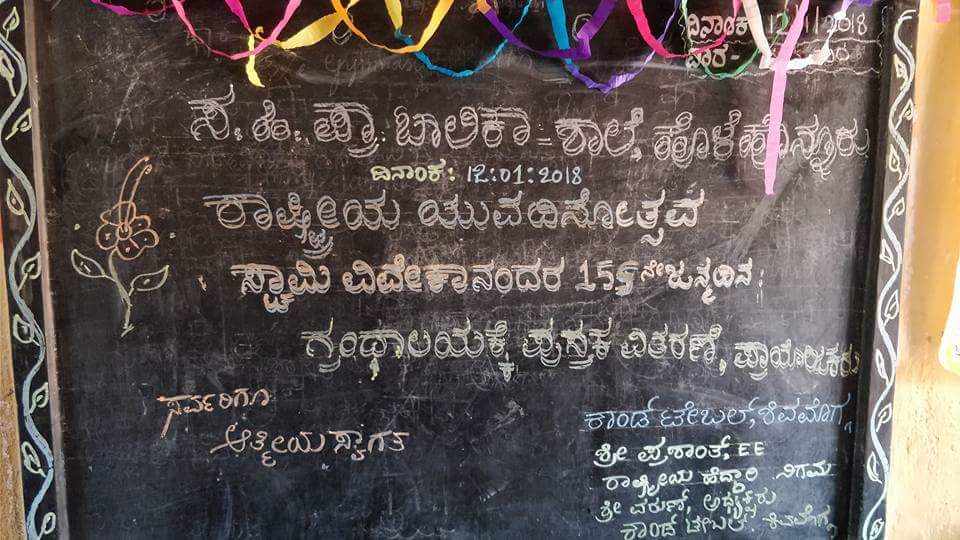 ದಿನಾಂಕ 12/1/2018
ವಾರ-
ಸ. ಹಿ. ಪ್ರಾ. ಬಾಲಿಕಾ = ಶಾಲೆ, ಹೊಳೆಹೊನ್ನೂರು
ದಿನಾಂಕ: 12:01:2018
ರಾಷ್ಟ್ರೀಯ ಯುವದಿನೋತ್ಸವ
ಸ್ವಾಮಿ ವಿವೇಕಾನಂದರ 155ನೇ ಜನ್ಮದಿನ:
ಗ್ರಂಥಾಲಯಕ್ಕೆ ಪುಸ್ತಕ ವಿತರಣೆ, ಪ್ರಾಯೋಜಕರು
ಸರ್ವರಿಗೂ
ಆತ್ಮೀಯ ಸ್ವಾಗತ
ರಾಂಡ್ ಟೇಬಲ್, ಶಿವಮೊಗ್ಗ
ಶ್ರೀ ಪ್ರಶಾಂತ್, EE
ರಾಷ್ಟ್ರೀಯ ಹೆದ್ದಾರಿ ನಿಗಮ
ಶ್ರೀ ವರುಣ್, ಅಧ್ಯಕ್ಷರು
ರಾಂಡ್ ಟೇಬಲ್ ಶಿವಮೊಗ್ಗ